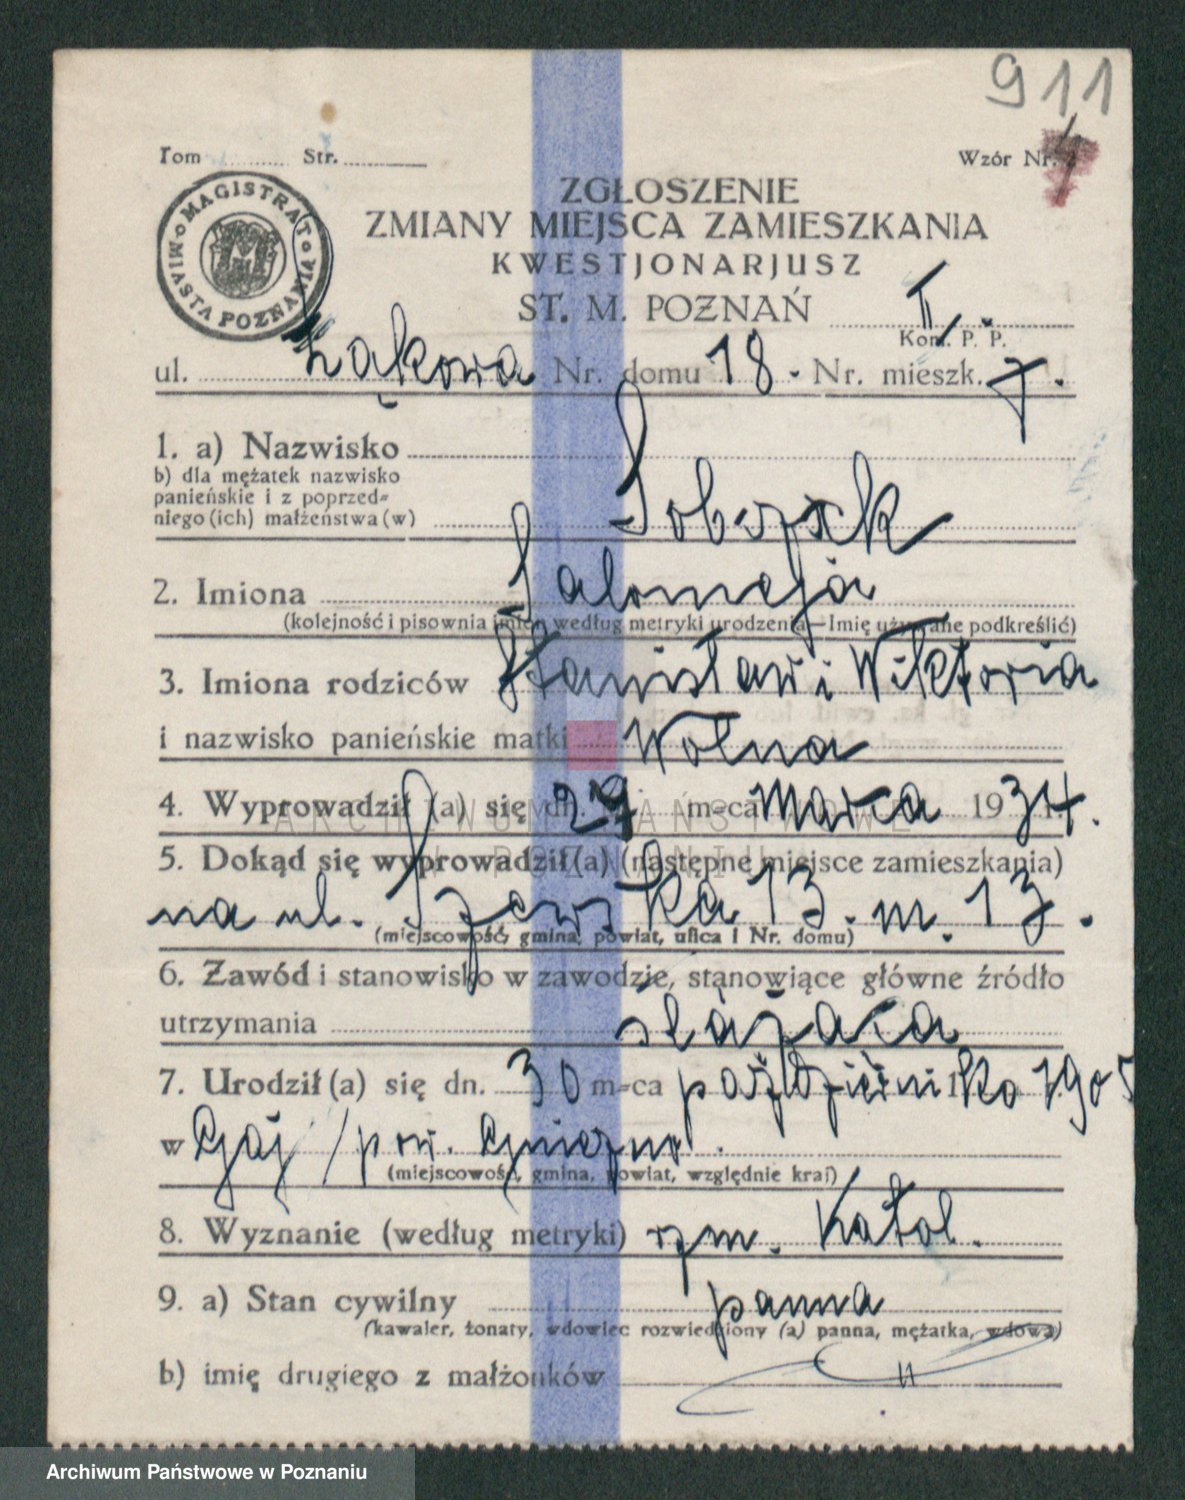 911
Tom ............ Str. ............ Wzór Nr.
MAGISTRAT MIASTA POZNANIA
ZGŁOSZENIE
ZMIANY MIEJSCA ZAMIESZKANIA
KWESTJONARJUSZ
ST. M. POZNAŃ II.
Kom. P. P.
ul. Łąkowa Nr. domu 18. Nr. mieszk. 7.
1. a) Nazwisko
b) dla mężatek nazwisko
panieńskie i z poprzed-
niego (ich) małżeństwa (w) Sobczak
2. Imiona Salomeja
(kolejność i pisownia imion według metryki urodzenia—Imię używane podkreślić)
3. Imiona rodziców Stanisław i Wiktoria
i nazwisko panieńskie matki Wolna
4. Wyprowadził (a) się dn. 29 m-ca Marca 1934 r.
5. Dokąd się wyprowadził(a) (następne miejsce zamieszkania)
na ul. 13. m. 13.
(miejscowość, gmina, powiat, ulica i Nr. domu)
6. Zawód i stanowisko w zawodzie, stanowiące główne źródło
utrzymania służąca
7. Urodził (a) się dn. 30 m-ca października 1905
w Gaj / pow. Gniezno.
(miejscowość, gmina, powiat, względnie kraj)
8. Wyznanie (według metryki) rzm. Katol.
9. a) Stan cywilny panna
(kawaler, żonaty, wdowiec rozwiedziony (a) panna, mężatka, wdowa)
b) imię drugiego z małżonków "
ARCHIWUM PAŃSTWOWE
W POZNANIU
Archiwum Państwowe w Poznaniu